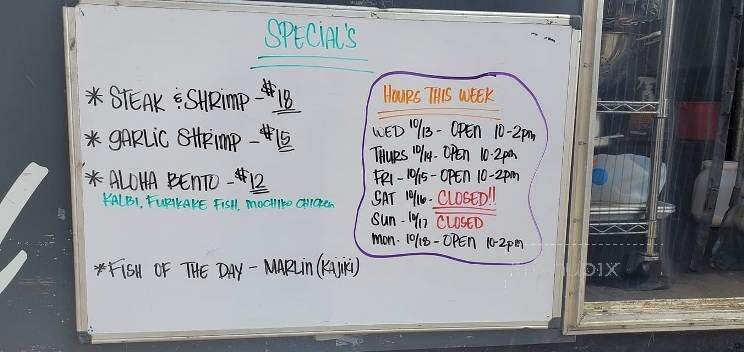 SPECIAL'S
* STEAK & SHRIMP - $18
* GARLIC SHRIMP - $15
* ALOHA BENTO - $12
KALBI, FURIKAKE FISH, MOCHIKO CHICKEN
* FISH OF THE DAY - MARLIN (KAJIKI)
HOURS THIS WEEK
WED 10/13 - OPEN 10-2pm
THURS 10/14 - OPEN 10-2pm
FRI - 10/15 - OPEN 10-2pm
SAT 10/16 - CLOSED!!
SUN - 10/17 CLOSED
MON - 10/18 - OPEN 10-2pm